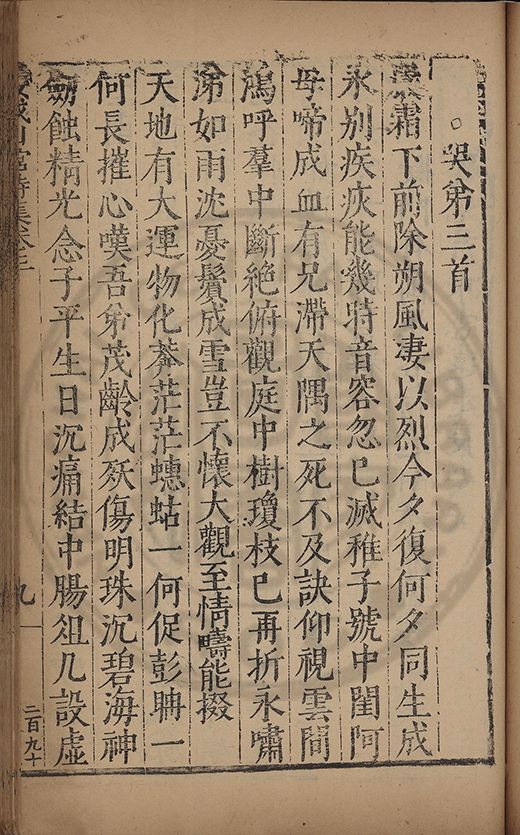 哭弟三首
嚴霜下前除朔風凄以烈今夕復何夕同生成
永別疾疢能幾時音容忽已滅稚子號中閨阿
母啼成血有兄滯天隅之死不及訣仰視雲間
鴻呼羣中斷絕俯觀庭中樹瓊枝已再折永嘯
涕如雨沈憂鬢成雪豈不懷大觀至情疇能掇
天地有大運物化莽茫茫蟪蛄一何促彭聃一
何長摧心嘆吾弟茂齡成殀傷明珠沉碧海神
劒蝕精光念子平生日沉痛結中腸俎几設虛
山宮詩集卷三
九
二百九十